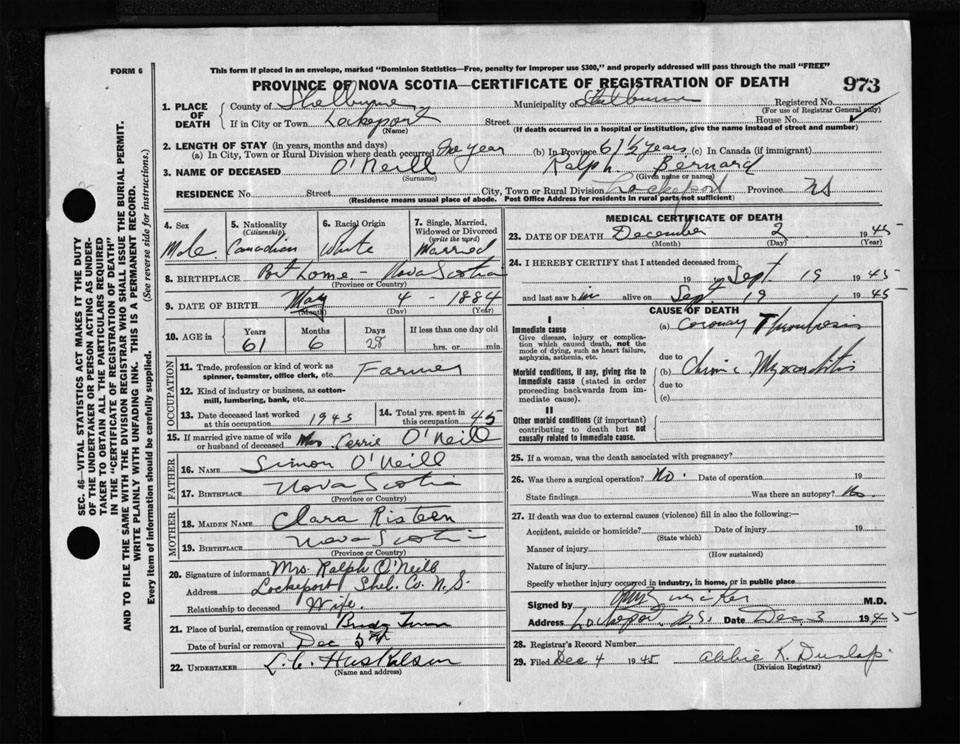 FORM 6
This form if placed in an envelope, marked "Dominion Statistics—Free, penalty for improper use $300," and properly addressed will pass through the mail "FREE"
PROVINCE OF NOVA SCOTIA—CERTIFICATE OF REGISTRATION OF DEATH
973
1. PLACE OF DEATH
County of Shelburne Municipality of Shelburne Registered No.
(For use of Registrar General only)
If in City or Town Lockeport Street House No.
(Name) (If death occurred in a hospital or institution, give the name instead of street and number)
2. LENGTH OF STAY (in years, months and days)
(a) In City, Town or Rural Division where death occurred One year (b) In Province 61 1/2 years (c) In Canada (if immigrant)
3. NAME OF DECEASED O'Neill Ralph Bernard
(Surname) (Given name or names)
RESIDENCE No. Street City, Town or Rural Division Lockeport Province NS
(Residence means usual place of abode. Post Office Address for residents in rural parts not sufficient)
4. Sex
Male
5. Nationality (Citizenship)
Canadian
6. Racial Origin
White
7. Single, Married, Widowed or Divorced (write the word)
Married
8. BIRTHPLACE Port Lorne - Nova Scotia
(Province or Country)
9. DATE OF BIRTH May 4 - 1884
(Month) (Day) (Year)
10. AGE in
Years Months Days If less than one day old
61 6 28 hrs. or min.
OCCUPATION
11. Trade, profession or kind of work as spinner, teamster, office clerk, etc. Farmer
12. Kind of industry or business, as cotton-mill, lumbering, bank, etc.
13. Date deceased last worked at this occupation 1945
14. Total yrs. spent in this occupation 45
15. If married give name of wife or husband of deceased Mrs. Carrie O'Neill
FATHER
16. NAME Simon O'Neill
17. BIRTHPLACE Nova Scotia
(Province or Country)
MOTHER
18. MAIDEN NAME Clara Risteen
19. BIRTHPLACE Nova Scotia
(Province or Country)
20. Signature of informant Mrs. Ralph O'Neill
Address Lockeport Shel. Co. N.S.
Relationship to deceased Wife.
21. Place of burial, cremation or removal
Date of burial or removal Dec 5th
22. UNDERTAKER L. C.
(Name and address)
MEDICAL CERTIFICATE OF DEATH
23. DATE OF DEATH December 2 1945
(Month) (Day) (Year)
24. I HEREBY CERTIFY that I attended deceased from:
19 to Sept 19 1945
and last saw him alive on Sep. 19 1945
CAUSE OF DEATH
I
Immediate cause
Give disease, injury or complication which caused death, not the mode of dying, such as heart failure, asphyxia, asthenia, etc.
(a) Coronary Thrombosis
due to
Morbid conditions, if any, giving rise to immediate cause (stated in order proceeding backwards from immediate cause).
(b) Chronic Myocarditis
due to
(c)
II
Other morbid conditions (if important) contributing to death but not causally related to immediate cause.
25. If a woman, was the death associated with pregnancy?
26. Was there a surgical operation? No. Date of operation 19
State findings Was there an autopsy? No.
27. If death was due to external causes (violence) fill in also the following:—
Accident, suicide or homicide? Date of injury 19
(State which)
Manner of injury
(How sustained)
Nature of injury
Specify whether injury occurred in industry, in home, or in public place
Signed by M.D.
Address Lockeport, N.S. Date Dec. 3 1945
28. Registrar's Record Number
29. Filed Dec 4 1945 Abbie K. Dunlap.
(Division Registrar)
SEC. 46—VITAL STATISTICS ACT MAKES IT THE DUTY
OF THE UNDERTAKER OR PERSON ACTING AS UNDER-
TAKER TO OBTAIN ALL THE PARTICULARS REQUIRED
IN THE "CERTIFICATE OF REGISTRATION OF DEATH"
AND TO FILE THE SAME WITH THE DIVISION REGISTRAR WHO SHALL ISSUE THE BURIAL PERMIT.
WRITE PLAINLY WITH UNFADING INK. THIS IS A PERMANENT RECORD.
Every item of information should be carefully supplied. (See reverse side for instructions.)